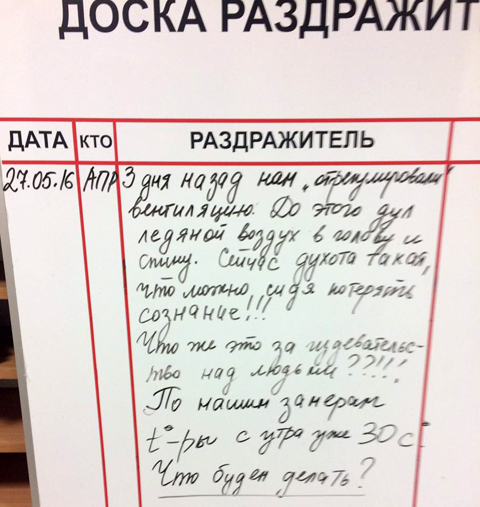 ДОСКА РАЗДРАЖИТ
ДАТА КТО РАЗДРАЖИТЕЛЬ
27.05.16 АПР 3 дня назад нам „отрегулировали"
вентиляцию. До этого дул
ледяной воздух в голову и
спину. Сейчас духота такая,
что можно, сидя потерять
сознание!!!
Что же это за издеватель-
тво над людьми??!!!
По нашим замерам
t°-ры с утра уже 30с°
Что будем делать?